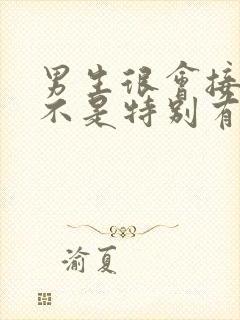 男生很會接
不是特别有
渝夏